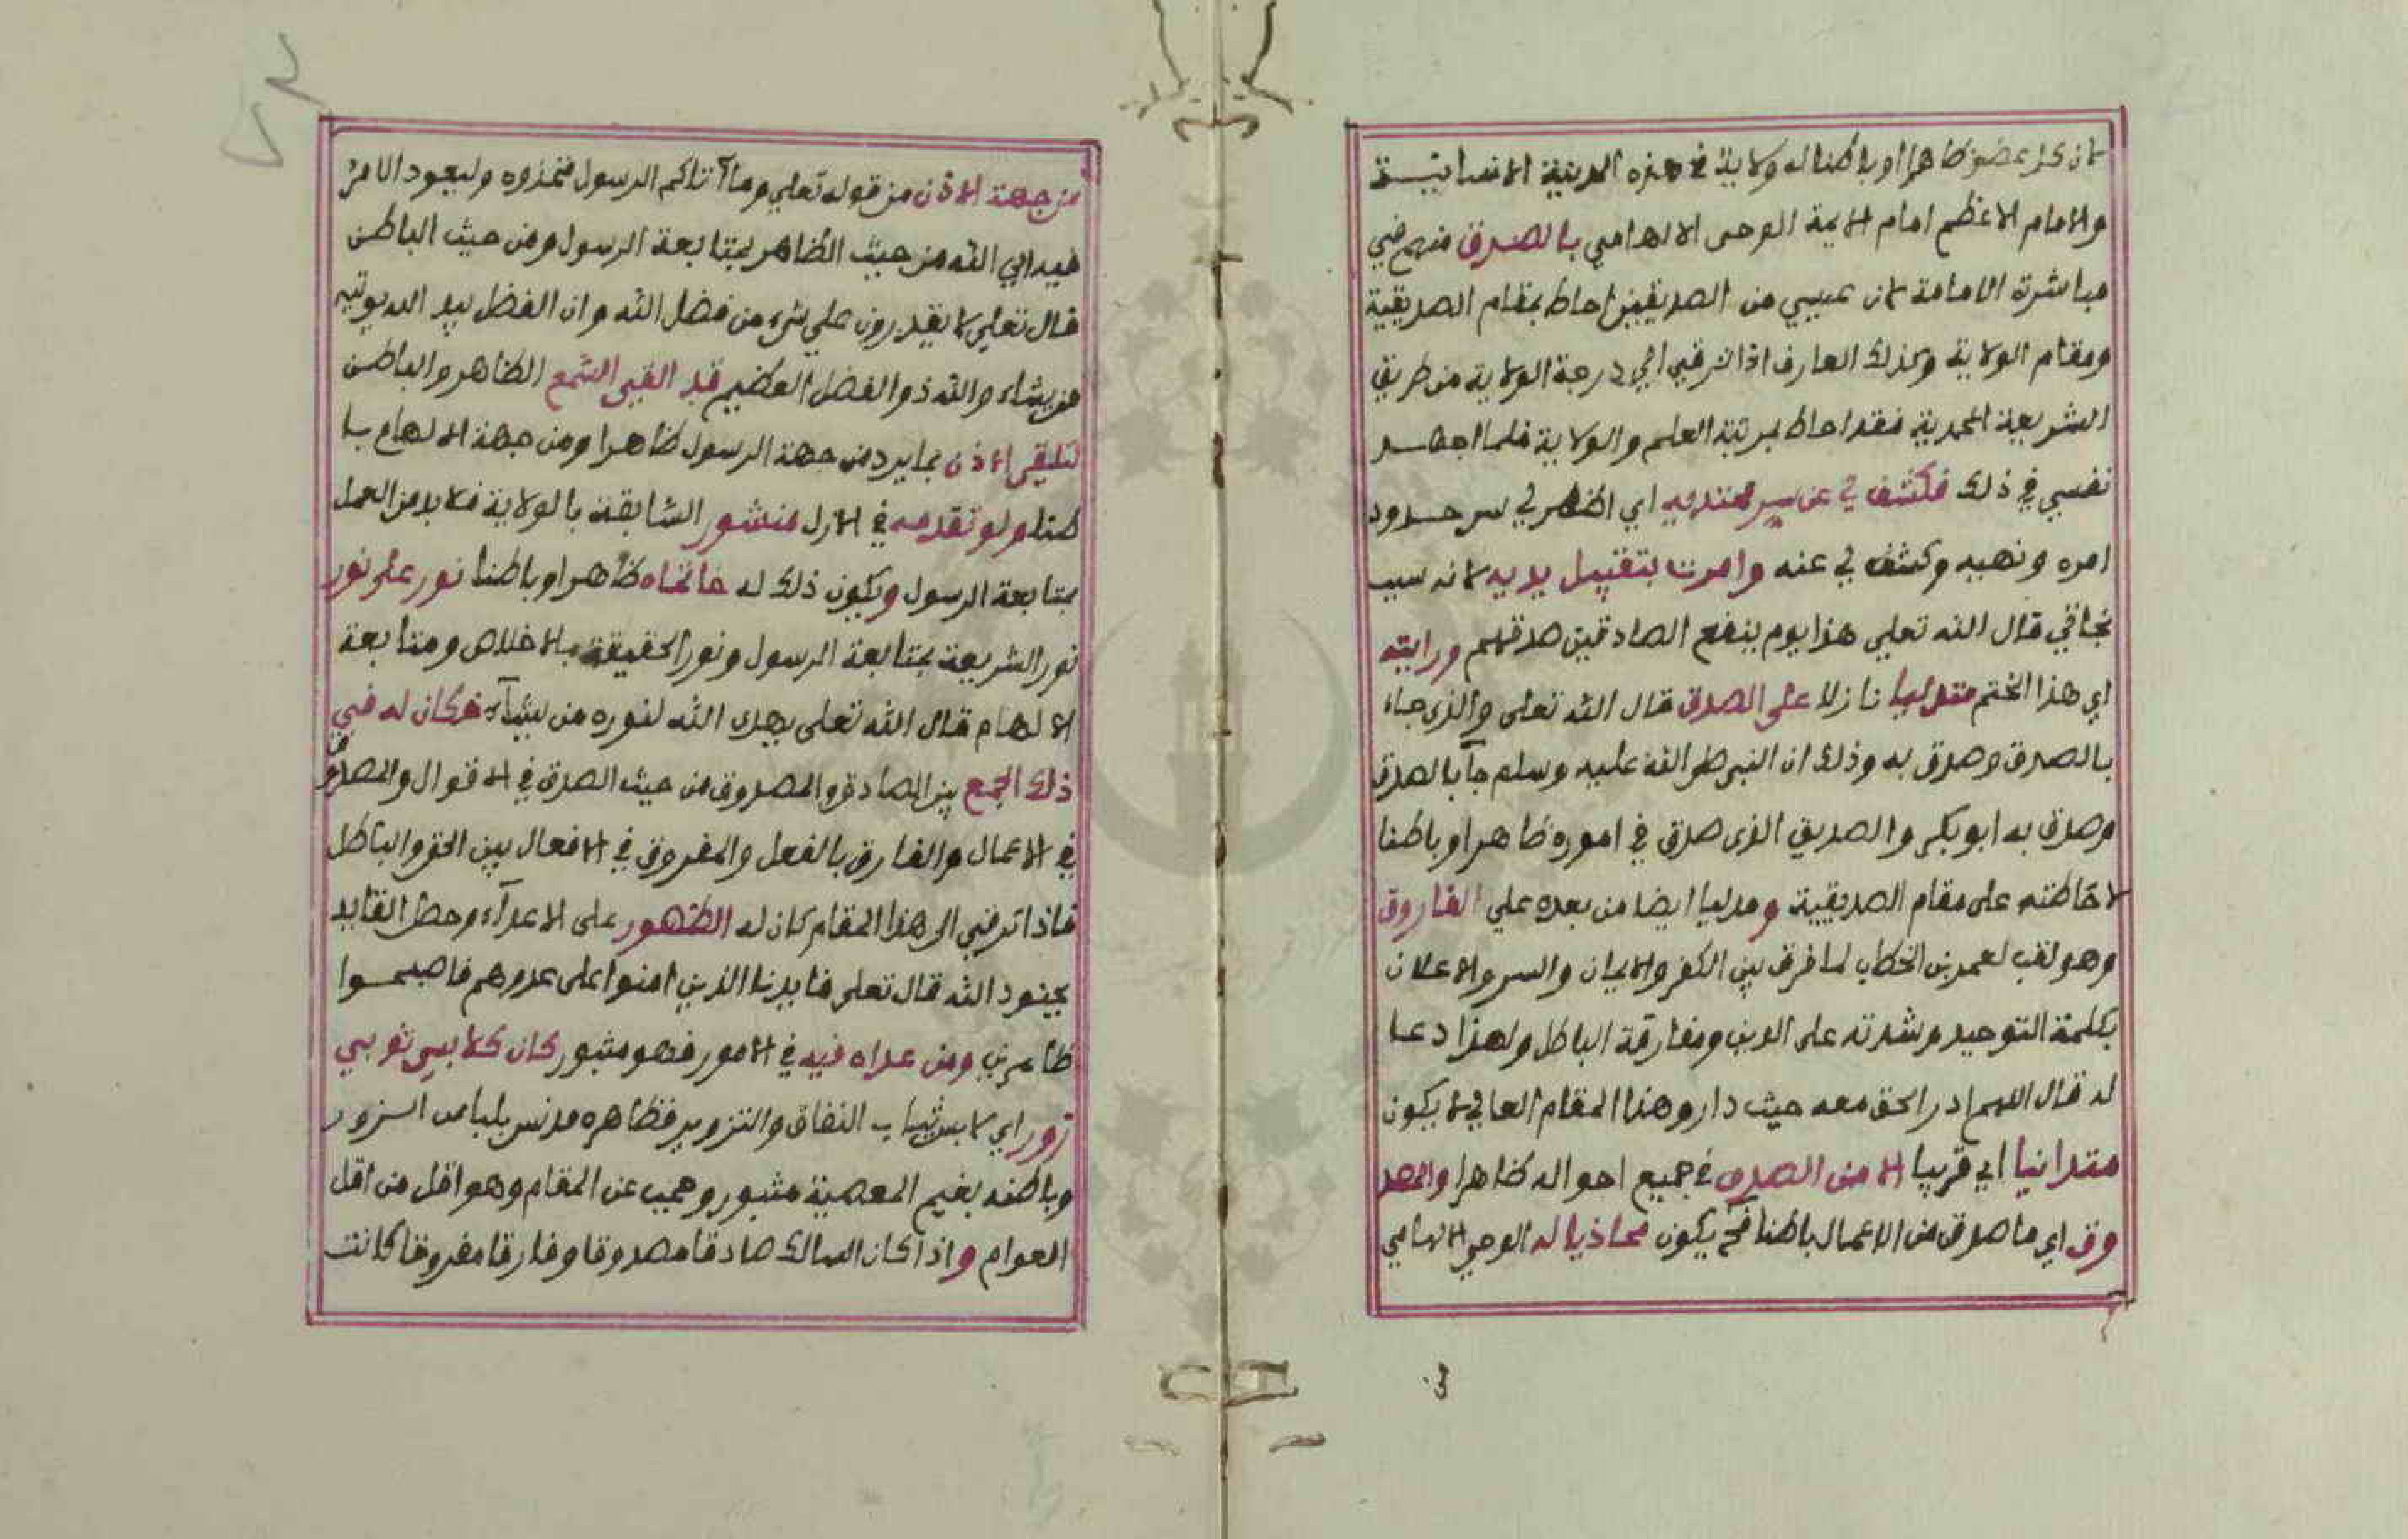 لان كل عضو ظاهرا او باطنا له ولاية في هذه المدينة الانسانية
والامام الاعظم امام الايمة الوحى الالهامي بالصدق منهم في
مباشرة الامامة لان عيسي من الصديقين احاط بمقام الصديقية
ومقام الولاية وكذلك العارف اذا ترقي الي درجة الولاية من طريق
الشريعة المحمدية فقد احاط بمرتبة العلم والولاية فلما اجهد
نفسي في ذلك فكشف لي عن سر محتدیه اي اظهر لي سر حدود
امره ونهيه وكشف لي عنه وامرت بتقبيل يديه لانه سبب
نجاتي قال الله تعلي هذا يوم ينفع الصادقين صدقهم ورايته
اي هذا الختم متدليا نازلا على الصدق قال الله تعلى والذى جاء
بالصدق وصدق به وذلك ان النبي صلى الله عليه وسلم جآ بالصدق
وصدق به ابو بكر والصديق الذى صدق في اموره ظاهرا وباطنا
لاحاطته على مقام الصديقية ومدليا ايضا من بعده علي الفاروق
وهو لقب لعمر بن الخطاب لما فرق بين الكفر والايمان والسر والاعلان
بكلمة التوحيد وشدته على الدين ومفارقة الباطل ولهذا دعا
له قال اللهم ادر الحق معه حيث دار وهذا المقام العالي لا يكون
متدانيا اي قريبا الا من الصدق في جميع احواله ظاهرا والمصد
وق اي ما صدق من الاعمال باطنا فح يكون محاذيا له الوحي الالهامي
من جهة الاذن من قوله تعلي وما آتاكم الرسول فخذوه وليعود الامر
فيه الي الله من حيث الظاهر بمتابعة الرسول ومن حيث الباطن
قال تعلي لا يقدرون علي شيء من فضل الله وان الفضل بيد الله يوتيه
من يشاء والله ذو الفضل العظيم قد القي السمع الظاهر والباطن
لتلقي الاذن بما يرد من جهة الرسول ظاهرا ومن جهة الالهام با
طنا ولو تقدمه في الازل منشور السابقة بالولاية فلا بد من العمل
بمتابعة الرسول ويكون ذلك له ظاهرا وباطنا نور على نور
نور الشريعة بمتابعة الرسول ونور الحقيقة بالاخلاص ومتابعة
الالهام قال الله تعلى يهدى الله لنوره من يشآء فكان له في
ذلك الجمع بين الصادق والمصدوق من حيث الصدق في الاقوال والمصدوق
في الاعمال والفارق بالفعل والمفروق في الافعال بين الحق والباطل
فاذا ترقي الى هذا المقام كان له الظهور على الاعدآء وحط القايد
بجنود الله قال تعلى فايدنا الذين امنوا على عدوهم فاصبحوا
ظاهرين ومن عداه فيه في الامور فهو مثبور كان كلابس ثوبي
زور اي لابس ثياب النفاق والتزوير فظاهره مدنس بلباس الزور
وباطنه بغيم المعصية مثبور وحجب عن المقام وهو اقل من اقل
العوام واذا كان السالك صادقا مصدوقا وفارقا مفروقا كانت